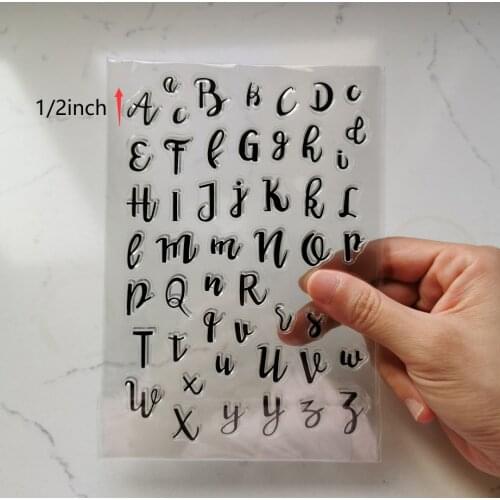 1/2inch
A a c B B C D c
E F f G g h i d
H I J j K k L
l m m N O P
p Q n R
T t q v r s
u U V w
W X x y y z z